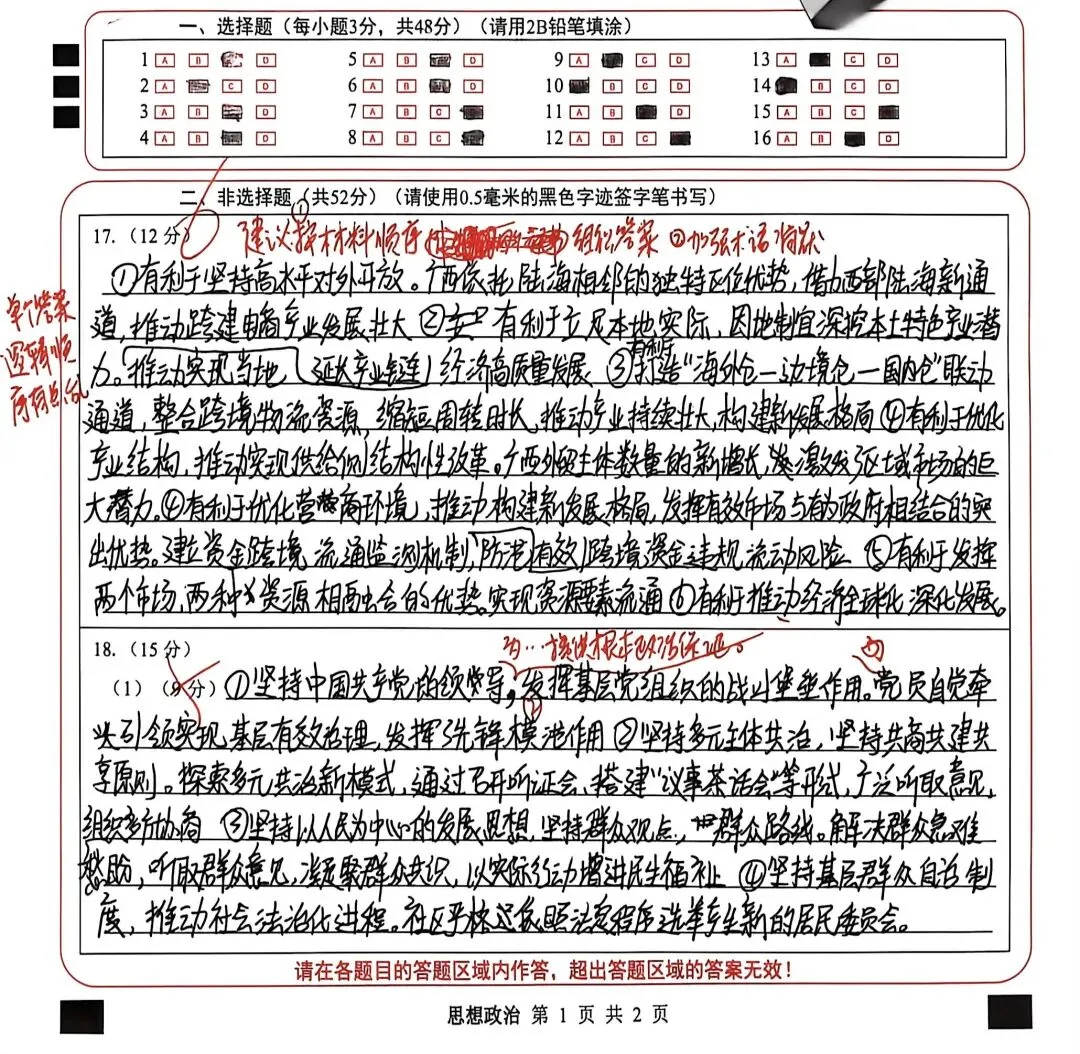 一、选择题（每小题3分，共48分）（请用2B铅笔填涂）
1 A B D 5 A B D 9 A C D 13 A C D
2 A C D 6 A B D 10 B C D 14 B C D
3 A B D 7 A B C 11 A B D 15 A B C
4 A B D 8 A B C 12 A B C 16 A B D
二、非选择题（共52分）（请使用0.5毫米的黑色字迹签字笔书写）
17.（12分）
①建议按材料顺序 组织答案 ②加强术语
单个答案
逻辑顺
序有点乱
①有利于坚持高水平对外开放。广西依托陆海相邻的独特区位优势，借力西部陆海新通
道，推动跨建电商产业发展壮大 ② 有利于立足本地实际，因地制宜深挖本土特色产业潜
力。推动实现当地 延长产业链 经济高质量发展 ③有利于打造“海外仓一边境仓一国内仓”联动
通道，整合跨境物流资源，缩短周转时长。推动产业持续壮大，构建新发展格局 ④有利于优化
产业结构，推动实现供给侧结构性改革。广西外贸主体数量的新增长，激发区域市场的巨
大潜力。④有利于优化营商环境，推动构建新发展格局，发挥有效市场与有为政府相结合的突
出优势。建立资金跨境流通监测机制，防范有效跨境资金违规流动风险 ⑤有利于发挥
两个市场，两种资源相融合的优势。实现资源要素流通 ⑥有利于推动经济全球化深化发展。
18.（15分）
为…提供根本政治保证。
（1）（9分）①坚持中国共产党的领导，发挥基层党组织的战斗堡垒作用。党员自觉牵
头引领实现基层有效治理，发挥先锋模范作用 ②坚持多元主体共治，坚持共商共建共
享原则。探索多元共治新模式，通过召开听证会、搭建“议事茶话会”等形式，广泛听取意见，
组织多方协商 ③坚持以人民为中心的发展思想，坚持群众观点，群众路线。解决群众急难
愁盼，听取群众意见，凝聚群众共识，以实际行动增进民生福祉 ④坚持基层群众自治制
度，推动社会法治化进程。社区严格依照法定程序选举产生新的居民委员会。
请在各题目的答题区域内作答，超出答题区域的答案无效！
思想政治 第 1 页 共 2 页